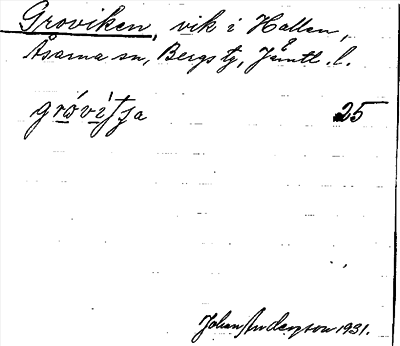 Groviken, vik i Hallen,
Åsarna sn, Bergs tg, Jämtl. l.
gróvìtja 25
Johan Anderzson 1931.